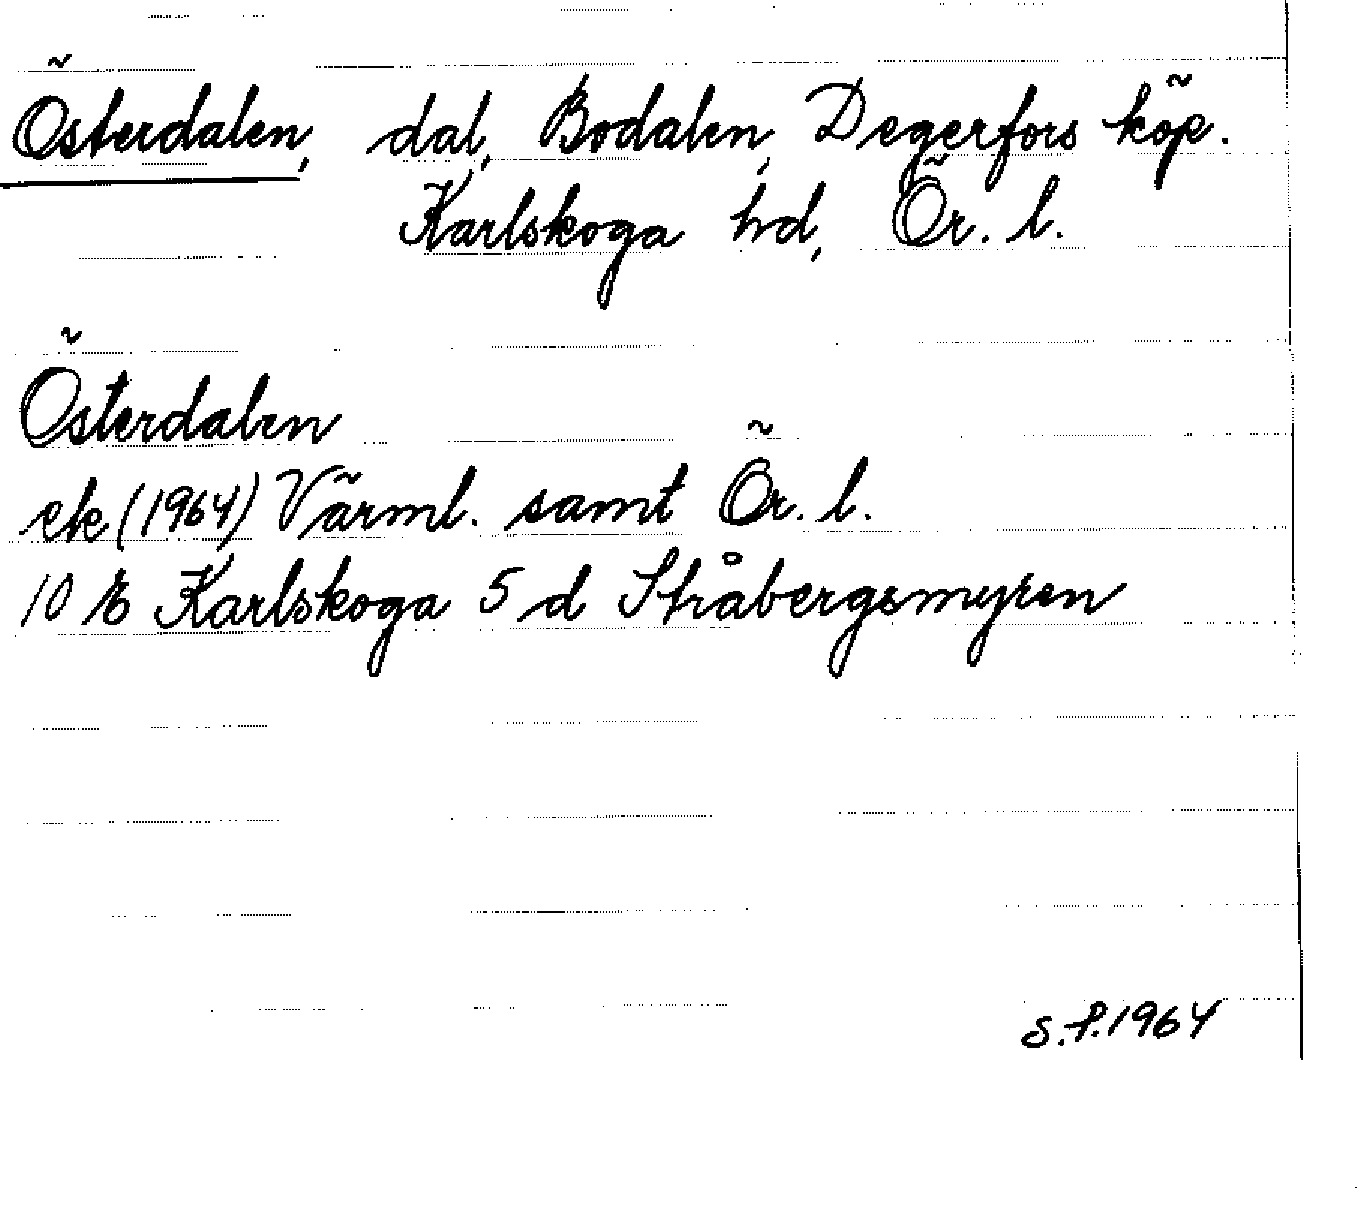 Österdalen, dal, Bodalen, Degerfors köp.
Karlskoga hd, Ör. l.
Österdalen
ek (1964) Värml. samt Ör. l.
10 E Karlskoga 5 d Stråbergsmyren
S.f. 1964